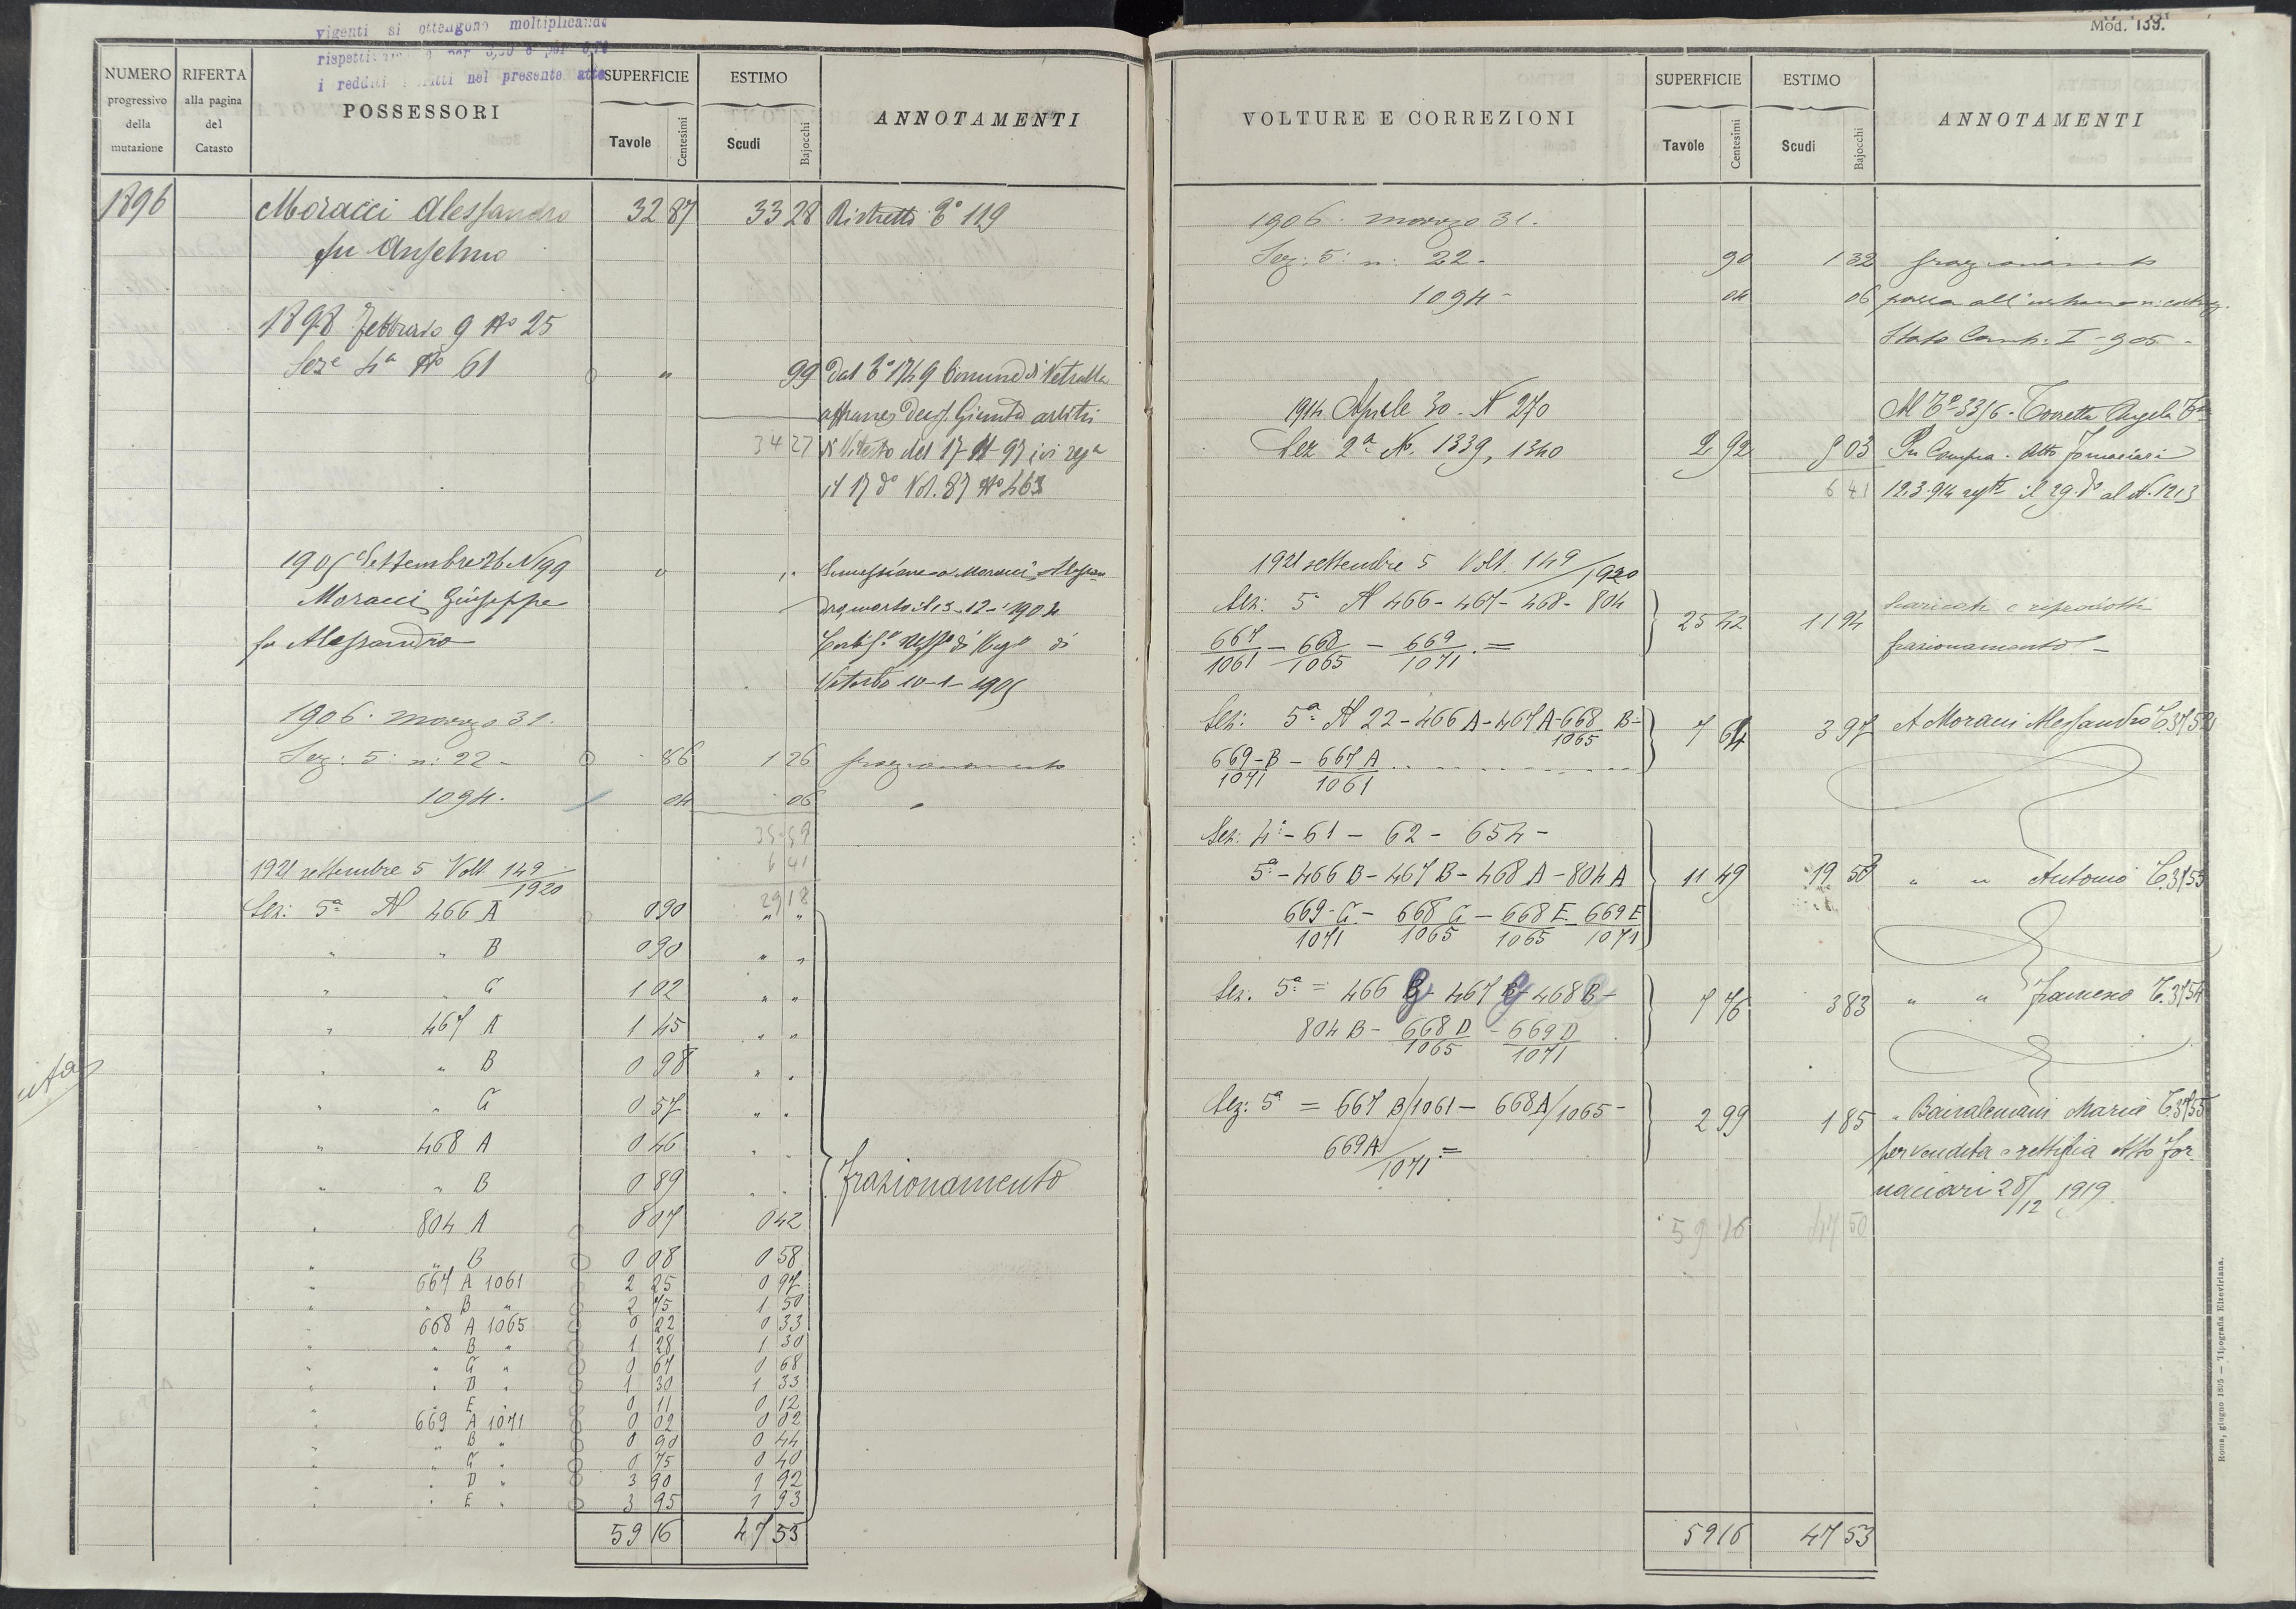 vigenti si ottengono moltiplicando
i redditi nel presente atto
NUMERO progressivo della mutazione
RIFERTA alla pagina del Catasto
POSSESSORI
SUPERFICIE
Tavole Centesimi
ESTIMO
Scudi Bajocchi
ANNOTAMENTI
1896 Moracci Alessandro 32 87 33 28 Ristretto 119
fu Anselmo
1898 Febbraio 9 No 25
Seze 4a No 61 " 99 Dal 1749 Comune di Vetralla
affranco Giunta arbitri
34 27 di Viterbo del 17-11-97 ivi rega
il 17 do Vol. 87 No 463
1905 Settembre 26 N 199 " " Successione a Moracci Alessan
Moracci Giuseppe dro, morto il 13-12-1904
fu Alessandro di
Viterbo 10-1-1905
1906. marzo 31.
Sez: 5: n: 22 - 86 1 26 frazionamento
1094. 04 06 "
35 59
6 41
29 18
1921 settembre 5 Volt. 149/1920
Sez: 5a N 466 A 0 90 " "
" " B 0 90 " "
" " C 1 02 " "
" 467 A 1 45 " "
" " B 0 98 " "
" " C 0 57 " "
" 468 A 0 46 " "
" " B 0 89 " "
frazionamento
" 804 A 0 07 0 42
" " B 0 08 0 58
" 667 A 1061 2 25 0 97
" " B " 2 75 1 50
" 668 A 1065 0 22 0 33
" " B " 1 28 1 30
" " C " 0 67 0 68
" " D " 1 30 1 33
" " E " 0 11 0 12
" 669 A 1071 0 02 0 02
" " B " 0 90 0 44
" " C " 0 75 0 40
" " D " 3 90 1 92
" " E " 3 95 1 93
59 16 47 53
Mod. 139.
VOLTURE E CORREZIONI
SUPERFICIE
Tavole Centesimi
ESTIMO
Scudi Bajocchi
ANNOTAMENTI
1906. marzo 31.
Sez: 5: n: 22 - 90 1 32 frazionamento
1094 - 04 06 passa all'urbano
Stato Camb: I - 905 -
1914 Aprile 30 - N 270 Al To 3316 - Torretta Angela
Sez 2a N. 1339, 1340 2 92 5 03 Per Compra - Atto Fornaciari
6 41 12.3.914 regto il 29 do al N. 1213
1921 settembre 5 Volt. 149/1920
Sez: 5a N 466 - 467 - 468 - 804 25 42 11 94 Scaricati e riprodotti
667/1061 - 668/1065 - 669/1071 . = frazionamento -
Sez: 5a N 22 - 466 A - 467 A - 668/1065 B - 7 64 3 97 A Moracci Alessandro T. 3752
669-B/1071 - 667 A/1061
Sez: 4a - 61 - 62 - 654 -
5a - 466 B - 467 B - 468 A - 804 A 11 49 19 58 " " Antonio T. 3753
669-C/1071 - 668 C/1065 - 668 E/1065 - 669 E/1071
Sez. 5a = 466 C - 467 C - 468 B - 7 76 3 83 " " Francesco T. 3754
804 B - 668 D/1065 - 669 D/1071
Sez: 5a = 667 B/1061 - 668 A/1065 - 2 99 1 85 " Maria T. 3755
669 A/1071 = per vendita e rettifica Atto For
naciari 28/12 1919
59 16 47 50
59 16 47 53
Roma, giugno 1895 — Tipografia Elzeviriana.